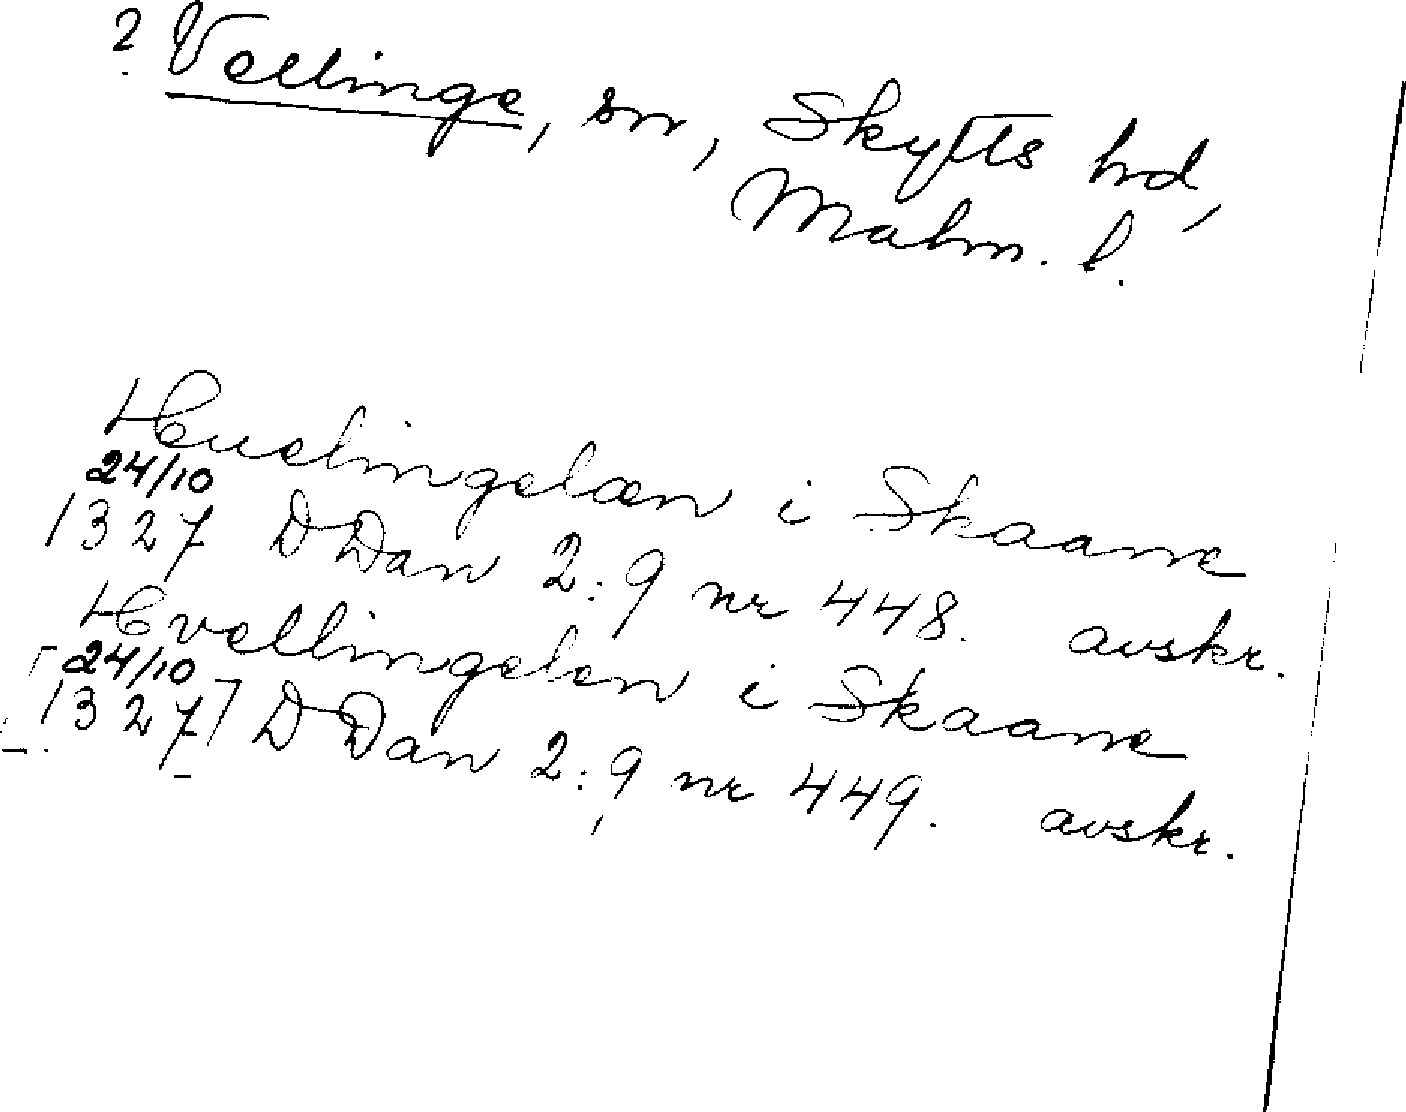 ? Vellinge, sn, Skytts hd,
Malm. l.
Huelingelæn i Skaane
24/10
1327 DDan 2:9 nr 448. avskr.
Hvellingelen i Skaane
[24/10
1327] DDan 2:9 nr 449. avskr.